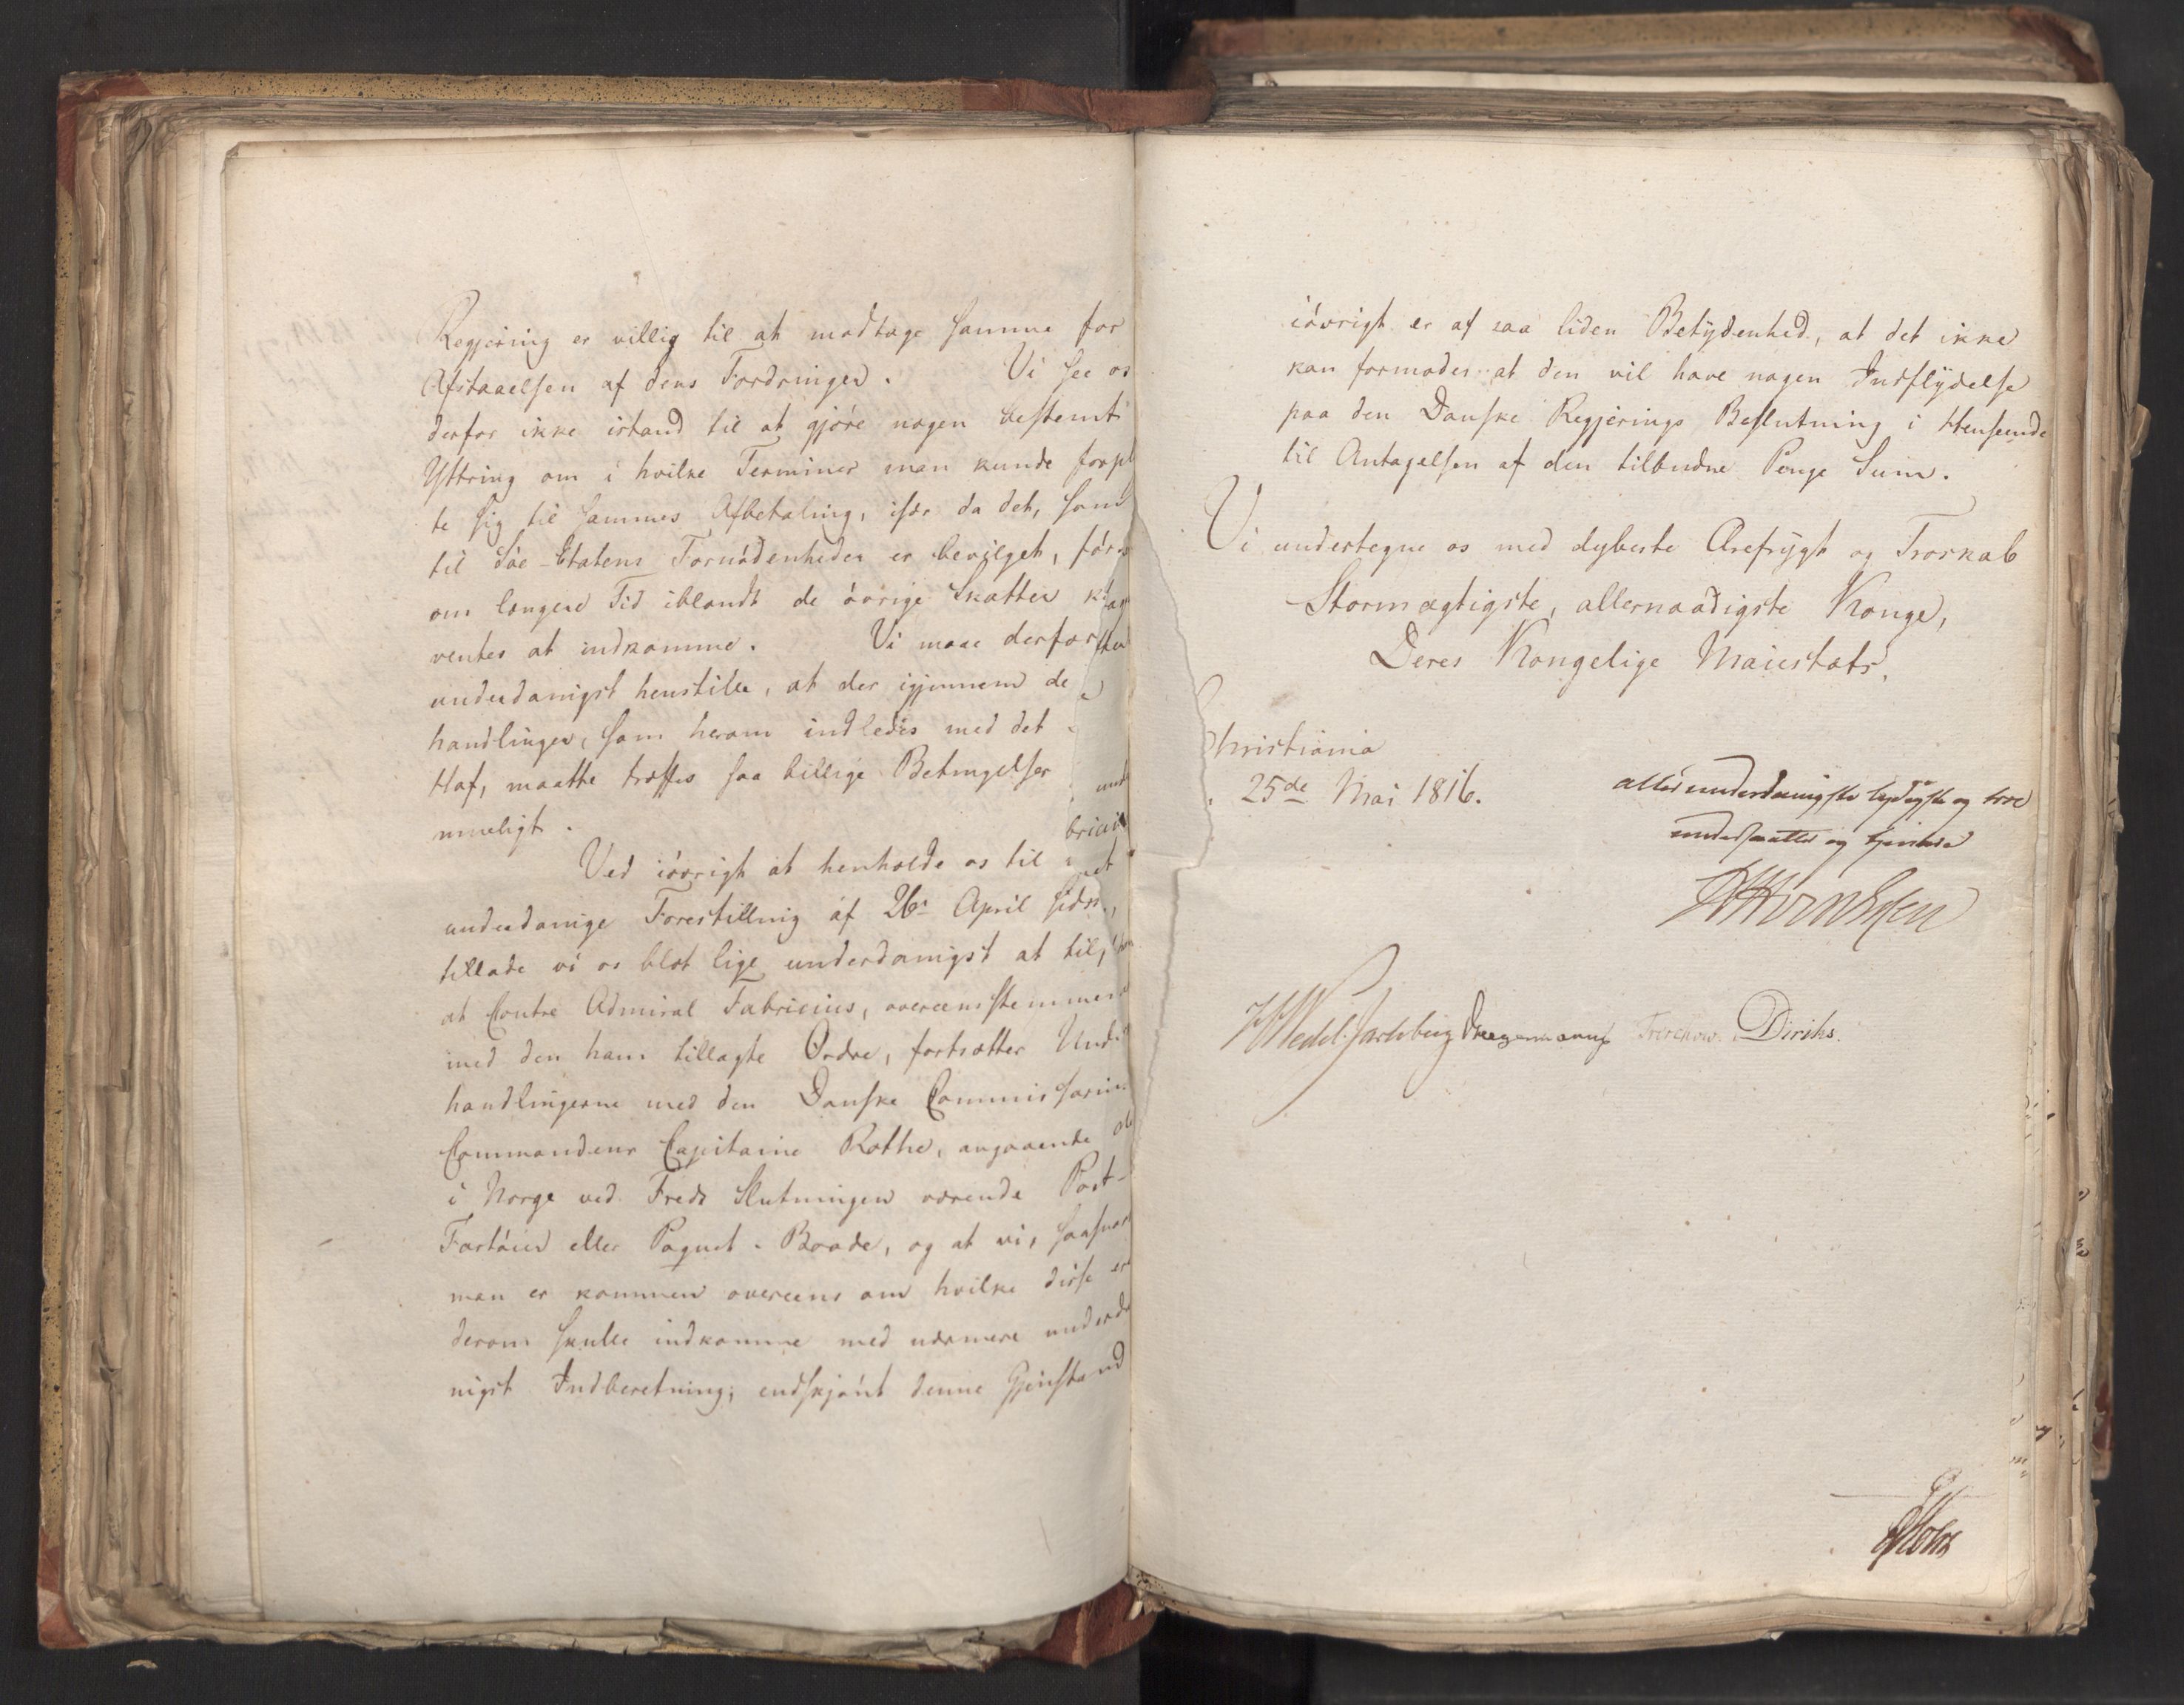 Regjering er villig til at modtage samme for
Afstaaelsen af dens Fordringer. Vi see os
derfor ikke istand til at gjøre nogen bestemt
Yttring om i hvilke Terminer man kunde forpl
te sig til sammes Afbetaling, især da det, som
til Søe-Etatens Fornødenheder er bevilget, først
om længere Tid iblandt de øvrige Skatter k
ventes at indkomme. Vi maae derfor
underdanigst henstille, at der igjennem de
handlinger, som herom indledes med det
Hof, maatte træffes saa billige Betingelser
mueligt.
Ved iøvrigt at henholde os til
underdanige Forestilling af 26de April sidst,
tillade vi os blot lige underdanigst at til
at Contre Admiral Fabricius, overeensstemmen
med den ham tillagte Ordre, fortsætter Und
handlingerne med den Danske Commissarius
Commandeur Capitaine Rothe, angaaende de
i Norge ved Freds Slutningen værende Post-
Fartøier eller Paquet-Baade, og at vi, saasnart
man er kommen overeens om hvilke disse ere
derom skulle indkomme med nærmere underda
nigst Indberetning; endskjønt denne Gjenstand
iøvrigt er af saa liden Betydenhed, at det ikke
kan formodes at den vil have nogen Indflydelse
paa den Danske Regjerings Beslutning i Henseende
til Antagelsen af den tilbudne Penge Sum.
Vi undertegne os med dybeste Ærefrygt og Troskab
Stormægtigste, allernaadigste Konge,
Deres Kongelige Maiestæts,
Christiania
25de Mai 1816.
allerunderdanigste lydigste og troe
undersaatter og tjenere
Wedel Jarlsberg Treschow. Diriks.
Holst